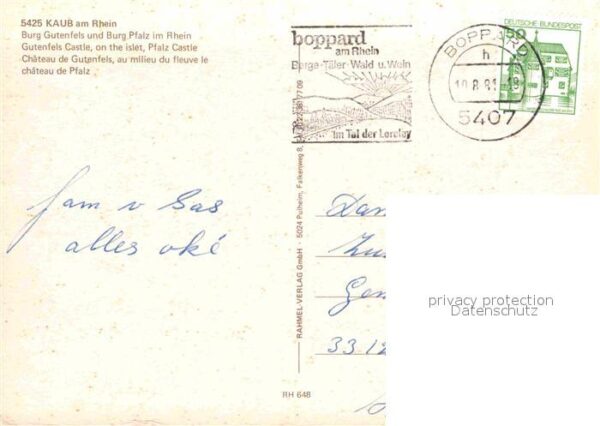 5425 KAUB am Rhein
Burg Gutenfels und Burg Pfalz im Rhein
Gutenfels Castle, on the islet, Pfalz Castle
Château de Gutenfels, au milieu du fleuve le
château de Pfalz
boppard
am Rhein
Burge-Täler-Wald u. Wein
Im Tal der Loreley
BOPPARD
h
10.8.81-18
5407
DEUTSCHE BUNDESPOST
50
alles oké
RAHMEL-VERLAG GmbH · 5024 Pulheim, Falkenweg 8
RH 648
privacy protection
Datenschutz